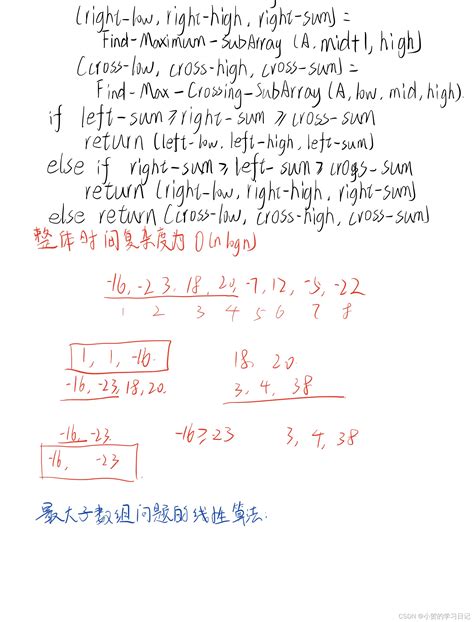 (right-low, right-high, right-sum) =
Find-Maximum-SubArray (A, mid+1, high)
(cross-low, cross-high, cross-sum) =
Find-Max-Crossing-SubArray (A, low, mid, high).
if left-sum ≥ right-sum ≥ cross-sum
return (left-low, left-high, left-sum)
else if right-sum ≥ left-sum ≥ cross-sum
return (right-low, right-high, right-sum)
else return (cross-low, cross-high, cross-sum)
整体时间复杂度为 O(n lgn)
-16, -23, 18, 20, -7, 12, -5, -22
1 2 3 4 5 6 7 8
1, 1, -16. 18, 20
-16, -23, 18, 20. 3, 4, 38
-16, -23 -16≥-23 3, 4, 38
-16, -23
最大子数组问题的线性算法.
CSDN @小萤的学习日记